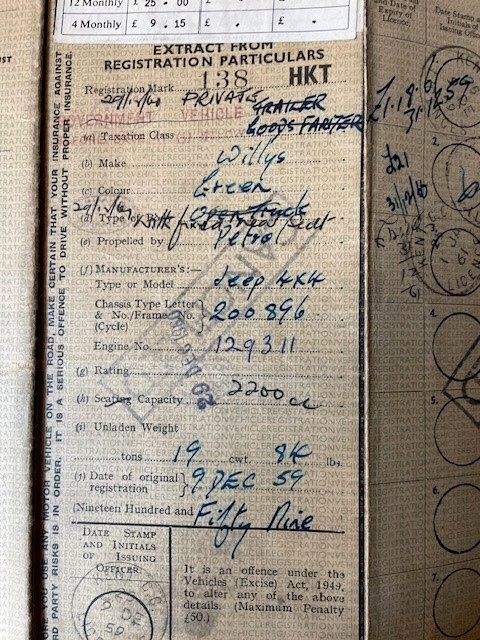 12 Monthly £ 25 . 00 £ . £ .
4 Monthly £ 9 . 15 £ . £ .
EXTRACT FROM
REGISTRATION PARTICULARS
138 HKT
Registration Mark
29/12/60 PRIVATE TRAILER
GOVERNMENT VEHICLE GOODS FARMER
(a) Taxation Class
(b) Make Willys
(c) Colour Green
29/12/60
(d) Type of Body Open Truck
With fixed rear seat
(e) Propelled by Petrol
(f) MANUFACTURER'S:—
Type or Model Jeep 4x4
Chassis Type Letter
& No./Frame No. 200896
(Cycle)
Engine No. 129311
29 DEC 1960
(g) Rating
2200 cc
(h) Seating Capacity
(i) Unladen Weight
tons 19 cwt. 84 lbs.
(j) Date of original
registration 9 DEC 59
(Nineteen Hundred and Fifty Nine
DATE STAMP
AND INITIALS
OF ISSUING
OFFICER
KENT C.C.
9 DE
59
It is an offence under the
Vehicles (Excise) Act, 1949,
to alter any of the above
details. (Maximum Penalty
£50.)
USE ANY MOTOR VEHICLE ON THE ROAD, MAKE CERTAIN THAT YOUR INSURANCE AGAINST
RD PARTY RISKS IS IN ORDER. IT IS A SERIOUS OFFENCE TO DRIVE WITHOUT PROPER INSURANCE.
and
Date of
Expiry of
Licence.
Date Stamp a
Initials of
Issuing Offic
1.
£1.18.0
31.12.59
2.
£21
31/12/60
4.
5.
6.
7.